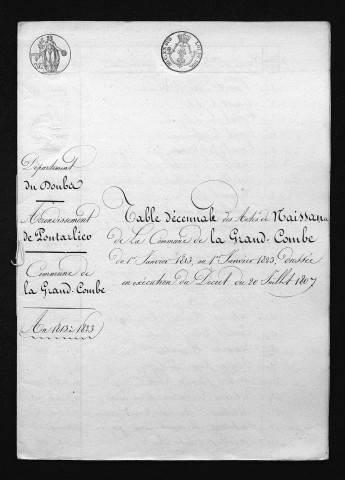 Département
du Doubs
Arrondissement
de Pontarlier
Commune de
la Grand-Combe
An 1813 à 1823
Table décennale des Actes de Naissance
de La Commune de la Grand-Combe
du 1er Janvier 1813, au 1er Janvier 1823, dressée
en exécution du Décret du 20 Juillet 1807